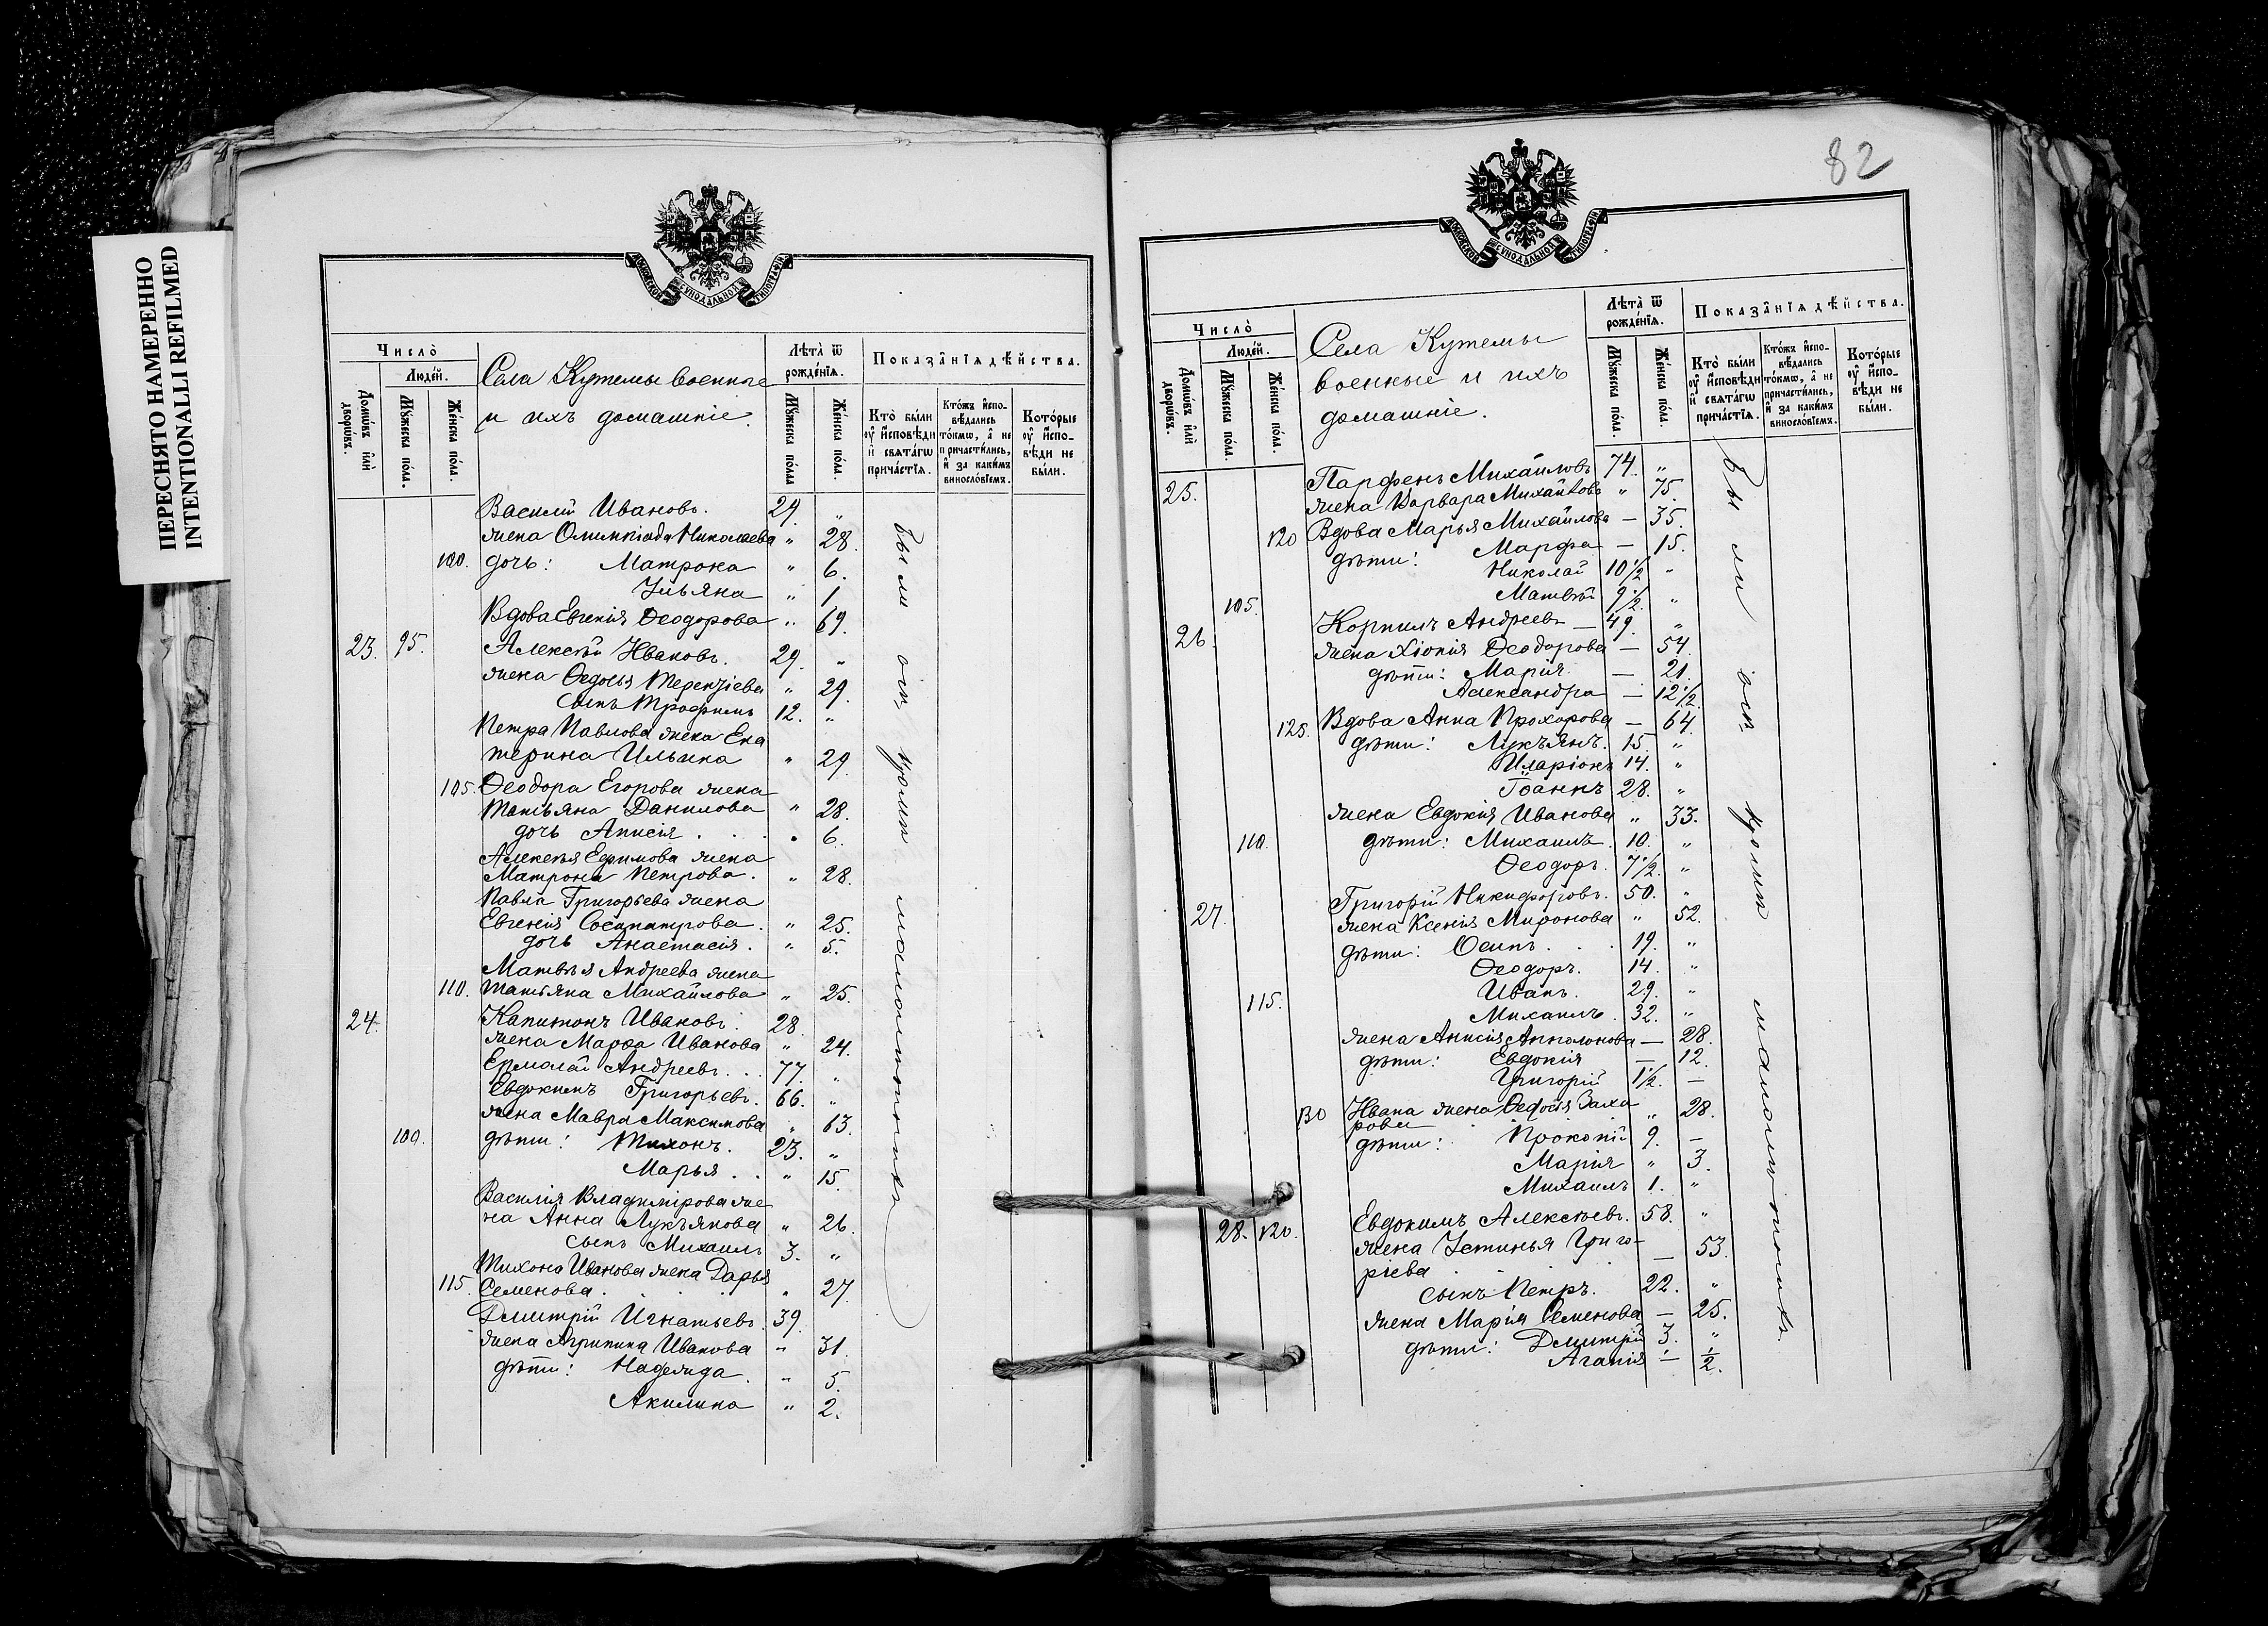 ПЕРЕСНЯТО НАМЕРЕННО
INTENTIONALLI REFILMED
МОСКОВСКОЙ СѴНОДАЛЬНОЙ ТИПОГРАФІИ
Число̀
Людей.
Домѡвъ или дворѡвъ.
Мꙋжеска пола.
Женска пола.
Села Кутемы военные
и ихъ домашніе.
Лѣта ѿ рожденїя.
Мꙋжеска пола
Женска пола.
Показанїя дѣйства.
Кто были ꙋ исповѣди и свѧтагѡ причастїѧ.
Ктожъ исповѣдались токмѡ, а не причастились, и за какимъ винословїемъ.
Которые ꙋ исповѣди не были.
Василій Ивановъ. 29. "
жена Олимпіада Николаева " 28.
100. дочь: Матрона " 6.
Ульяна " 1
Вдова Евгенія Ѳеодорова " 69.
23. 95. Алексѣй Ивановъ. 29. "
жена Ѳедосья Терентіева " 29.
сынъ Трофимъ 12. "
Петра Павлова жена Ека
терина Ильина " 29.
105. Ѳеодора Егорова жена
Татьяна Данилова " 28.
дочь Анисія . . . " 6.
Алексѣя Ефимова жена
Матрона Петрова. " 28.
Павла Григорьева жена
Евгенія Сосипатрова. " 25.
дочь Анастасія. " 5.
Матвѣя Андреева жена
110. Татьяна Михайлова " 25.
24. Капитонъ Ивановъ. 28.
жена Марѳа Иванова " 24.
Ермолай Андреевъ. . . 77. "
Евдокимъ Григорьевъ. 66. "
жена Мавра Максимова " 63.
100. дѣти: Тихонъ. 23. "
Марья . . " 15.
Василія Владимірова же
на Анна Лукъянова " 26.
сынъ Михаилъ 3. "
Тихона Иванова жена Дарья
115. Семенова. . . . " 27.
Дмитрій Игнатьевъ. 39.
жена Агрипина Иванова " 31.
дѣти: Надежда. " 5.
Акилина " 2.
Были
82
МОСКОВСКОЙ СѴНОДАЛЬНОЙ ТИПОГРАФІИ
Число̀
Людей.
Домѡвъ или дворѡвъ.
Мꙋжеска пола.
Женска пола.
Села Кутемы
военные и ихъ
домашніе.
Лѣта ѿ рожденїя.
Мꙋжеска пола.
Женска пола.
Показанїя дѣйства.
Кто были ꙋ исповѣди и свѧтагѡ причастїѧ.
Ктожъ исповѣдались токмѡ, а не причастились, и за какимъ винословїемъ.
Которые ꙋ исповѣди не были.
25. Парфенъ Михайловъ 74. "
жена Варвара Михайлова " 75.
120 Вдова Марья Михайлова — 35.
дѣти: Марфа — 15.
Николай 10½ "
105. Матвѣй 9½. "
26. Корнилъ Андреевъ — 49. "
жена Хіонія Ѳеодорова — 54.
дѣти: Марія. — 21.
Александра — 12½.
125. Вдова Анна Прохорова — 64.
дѣти: Лукъянъ. 15. "
Иларіонъ 14. "
Іоаннъ 28. "
жена Евдокія Иванова " 33.
110. дѣти: Михаилъ. 10. "
Ѳеодоръ. 7½. "
27. Григорій Никифоровъ. 50. "
жена Ксенія Миронова " 52.
дѣти: Осипъ. . . 19. "
Ѳеодоръ. 14. "
115. Иванъ. 29. "
Михаилъ. 32. "
жена Анисія Апполонова — 28.
дѣти: Евдокія — 12.
Григорій 1½. —
130 Ивана жена Ѳедосія Заха
рова " 28.
дѣти: Прокопій 9. —
Марія " 3.
Михаилъ 1. "
28. 120. Евдокимъ Алексѣевъ. 58. "
жена Устинья Григо-
ріева — 53.
сынъ Петръ. 22. "
жена Марія Семенова — 25.
дѣти: Дмитрій 3. "
Агапія — ½.
Были